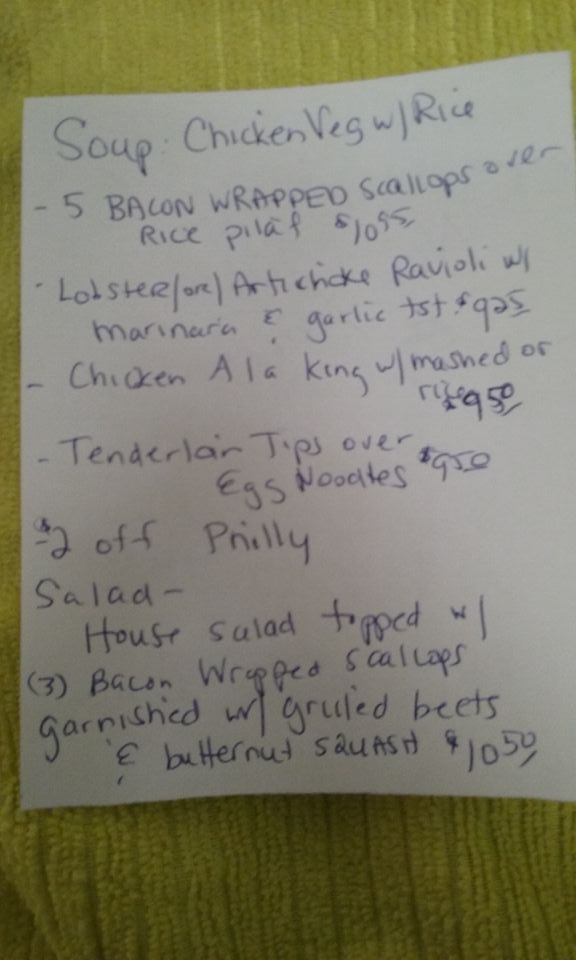 Soup: Chicken Veg w/ Rice
- 5 BACON WRAPPED Scallops over
Rice pilaf $10.95
- Lobster/or/Artichoke Ravioli w/
marinara & garlic tst. $9.25
- Chicken A la King w/mashed or
rice $9.50
- Tenderloin Tips over
Egg Noodles $9.50
$2 off Philly
Salad-
House salad topped w/
(3) Bacon Wrapped scallops
garnished w/ grilled beets
& butternut squash $10.50